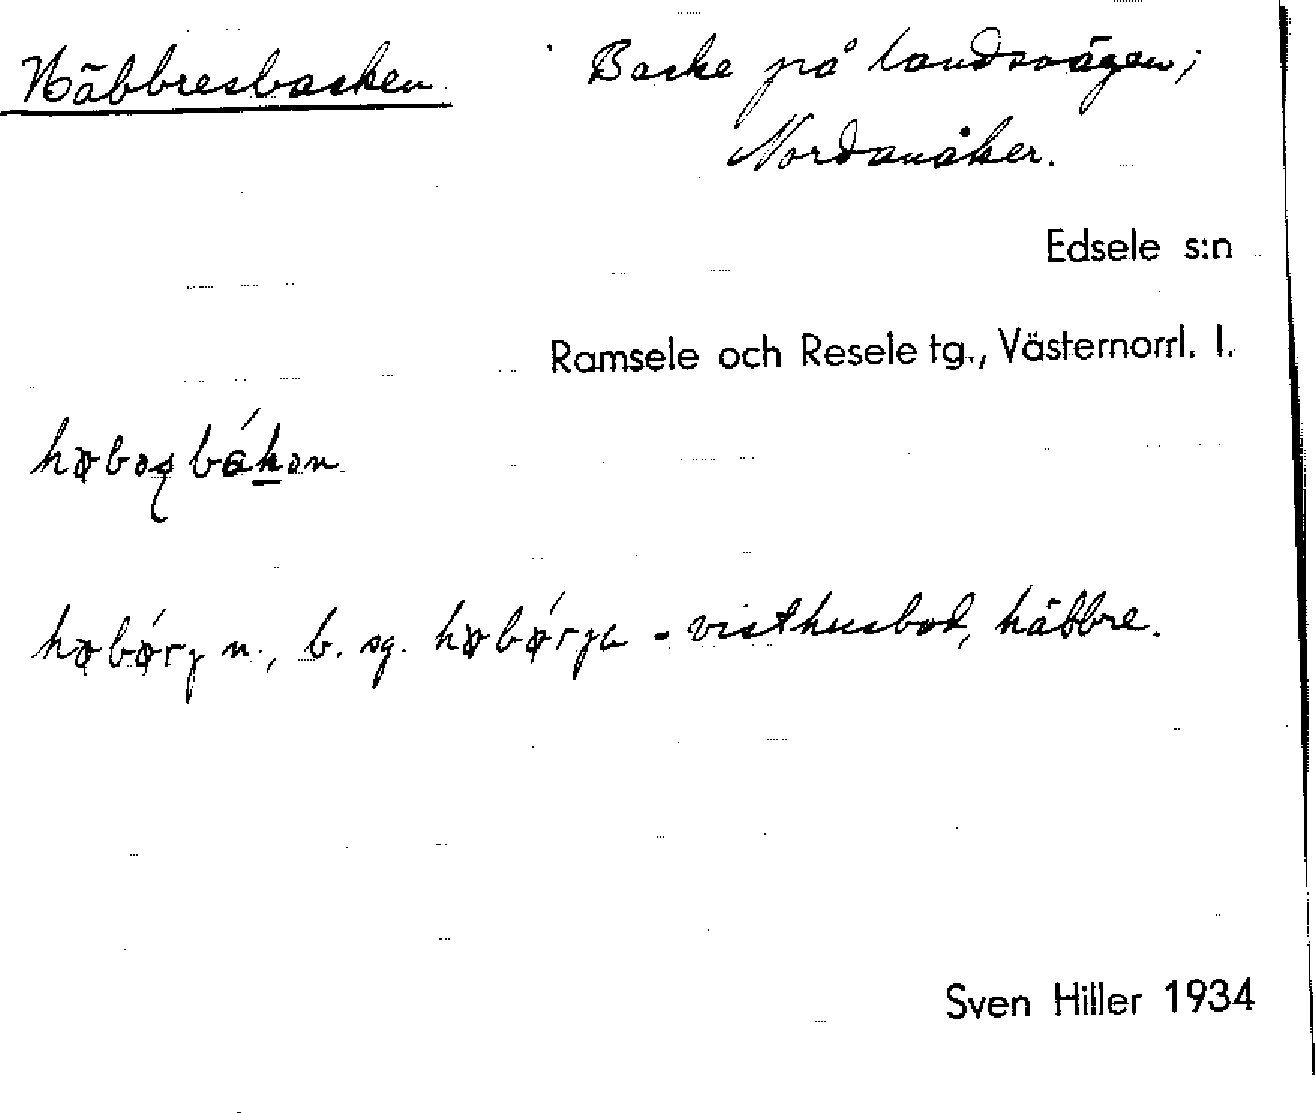 Häbbresbacken Backe på landsvägen;
Nordanåker.
Edsele s:n
Ramsele och Resele tg., Västernorrl. l.
n., b. sg. - visthusbod, häbbre.
Sven Hiller 1934